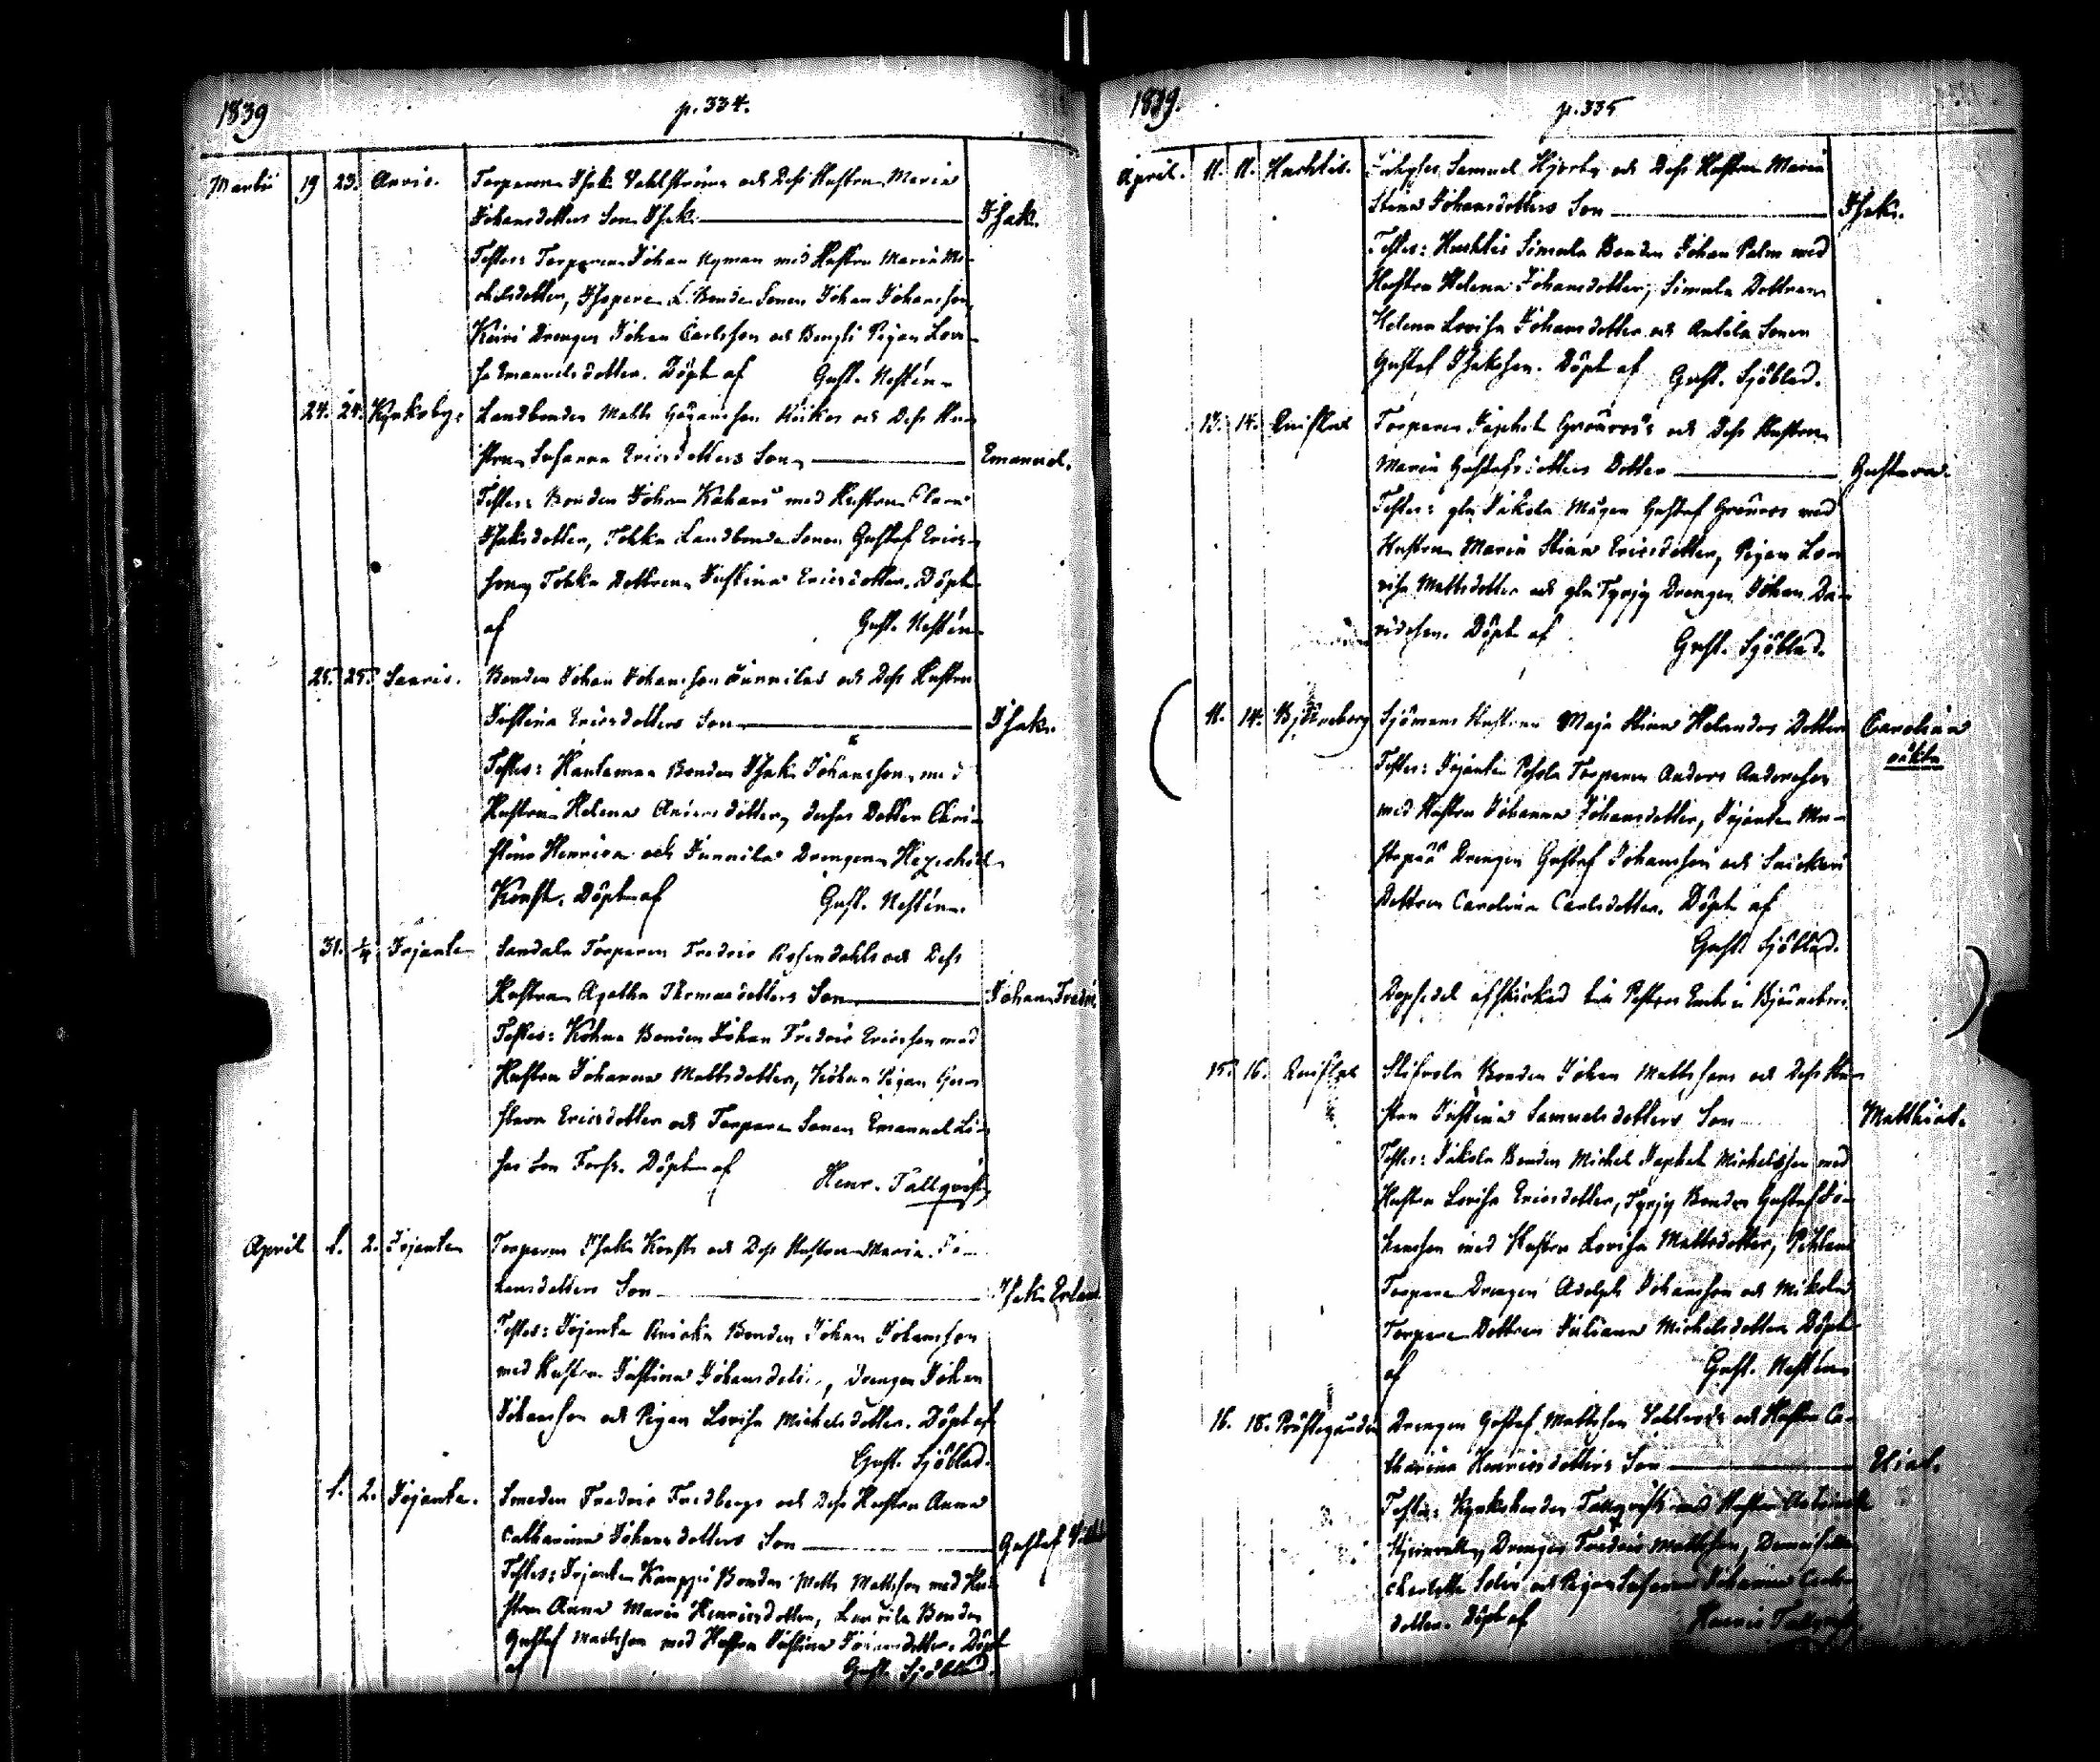 1839
p. 334.
Martii 19 23. Anvis. Torparen Isak Vahlströms och Dess Hustru Maria
Johansdotters Son Isak. Isak.
Testes: Torparen Johan Nyman med Hustru Maria Mi-
chelsdotter, Bonde Sonen Johan Johansson,
Keiri Drengen Johan Carlsson och Bengti Pigan Lovi-
sa Emanuelsdotter. Döpt af Gust. Nestén.
24. 24. Kyrkoby. Landbonden Matts och Dess Hu-
stru Susanna Ericsdotters Son Emanuel.
Testes: Bonden Johan med Hustru
Isaksdotter, Tokka Landbonde Sonen Gustaf Erics-
son, Tokka Dottren Justina Ericsdotter. Döpt
af Gust. Nestén
25. 25. Saaris. Bonden Johan Johansson Junnilas och Dess Hustru
Justina Ericsdotters Son Isak.
Testes: Hanteman Bonden Isak Johansson med
Hustru Helena Andersdotter, desses Dotter Chri-
stina Henrica och Junnila Drengen Hezechiel
Konst. Döpt af Gust. Nestén.
31. 1/4 Irjante Sandala Torparen Fredric Rosendahls och Dess
Hustru Agatha Thomasdotters Son Johan Fredric.
Testes: Köhna Bonden Johan Fredric Ericsson med
Hustru Johanna Mattsdotter, Köhna Pigan Gu-
stava Ericsdotter och Torpare Sonen Emanuel
Forss. Döpt af Henr. Tallqvist
April 1. 2. Irjante Torparen Isak Konsts och Dess Hustru Maria Jo-
hansdotters Son Isak Erland.
Testes: Irjante Knickti Bonden Johan Johansson
med Hustru Justina Johansdotter, Drengen Johan
Johansson och Pigan Lovisa Michelsdotter. Döpt af
Gust. Sjöblad.
1. 2. Irjante. Smeden Fredric Fredbergs och Dess Hustru Anna
Catharina Johansdotters Son Gustaf
Testes: Irjante Kauppi Bonden Matts Mattsson med Hu-
stru Anna Maria Henricsdotter, Laurila Bonden
Gustaf Mattsson med Hustru Justina Johansdotter. Döpt
af Gust. Sjöblad.
1839.
p. 335
April. 11. 11. Huchtis. Samuel Hjorts och Dess Hustru Maria
Stina Johansdotters Son Isak.
Testes: Huchtis Simula Bonden Johan Palm med
Hustru Helena Johansdotter, Simula Dottren
Helena Lovisa Johansdotter och Antila Sonen
Gustaf Isaksson. Döpt af Gust. Sjöblad.
13. 14. Qvistus Torparen Japhet Grönroos's och Dess Hustru
Maria Gustafsdotters Dotter Gustava.
Testes: gla Jakola Mågen Gustaf Grönroos med
Hustru Maria Stina Ericsdotter, Pigan Lo-
visa Mattsdotter och gla Tyrjy Drengen Johan Da-
vidsson. Döpt af Gust. Sjöblad.
11. 14. Björneborg Sjömans Hustrun Maja Stina Helanders Dotter Carolina
äkta
Testes: Irjante Torparen Anders Andersson
med Hustru Johanna Johansdotter, Irjante
Drengen Gustaf Johansson och Snickari
Dottren Carolina Carlsdotter. Döpt af
Gust. Sjöblad.
Dopsedel afskickad till Pastors Embe i Björneborg
15. 16. Qvistus Bonden Johan Mattssons och Dess Hu-
stru Justina Samuelsdotters Son Matthias.
Testes: Jakola Bonden Michel Japhet Michelsson med
Hustru Lovisa Ericsdotter, Tyrjy Bonden Gustaf Jo-
hansson med Hustru Lovisa Mattsdotter,
Torpare Drengen Adolph Johansson och Mikola
Torpare Dottren Juliana Michelsdotter Döpt
af Gust. Nestén
16. 18. Prestegården Drengen Gustaf Mattsson och Hustru Ca-
tharina Henricsdotters Son
Testes: Kyrkoherden Tallqvist med Hustru
Drengen Fredric Mattsson, Demoiselle
Charlotta och Pigan Johanna Carls-
dotter. Döpt af Henric Tallqvist.